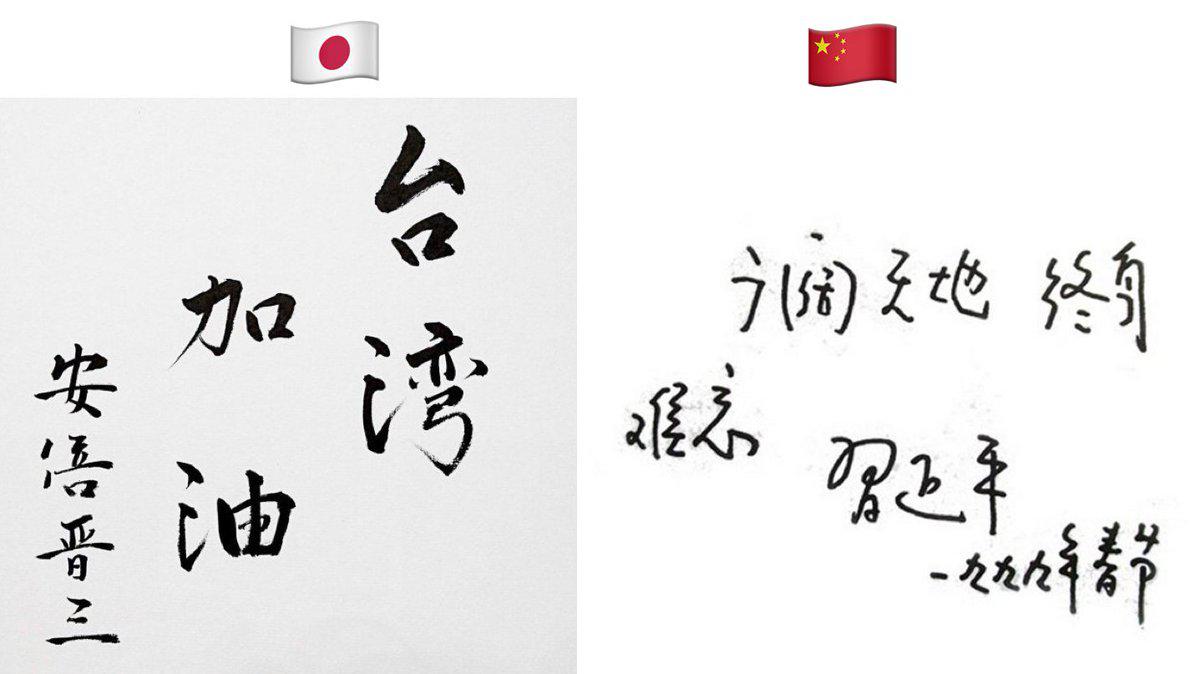 台湾
加油
安倍晋三
广阔天地 终身
难忘
習近平
一九九九年春节